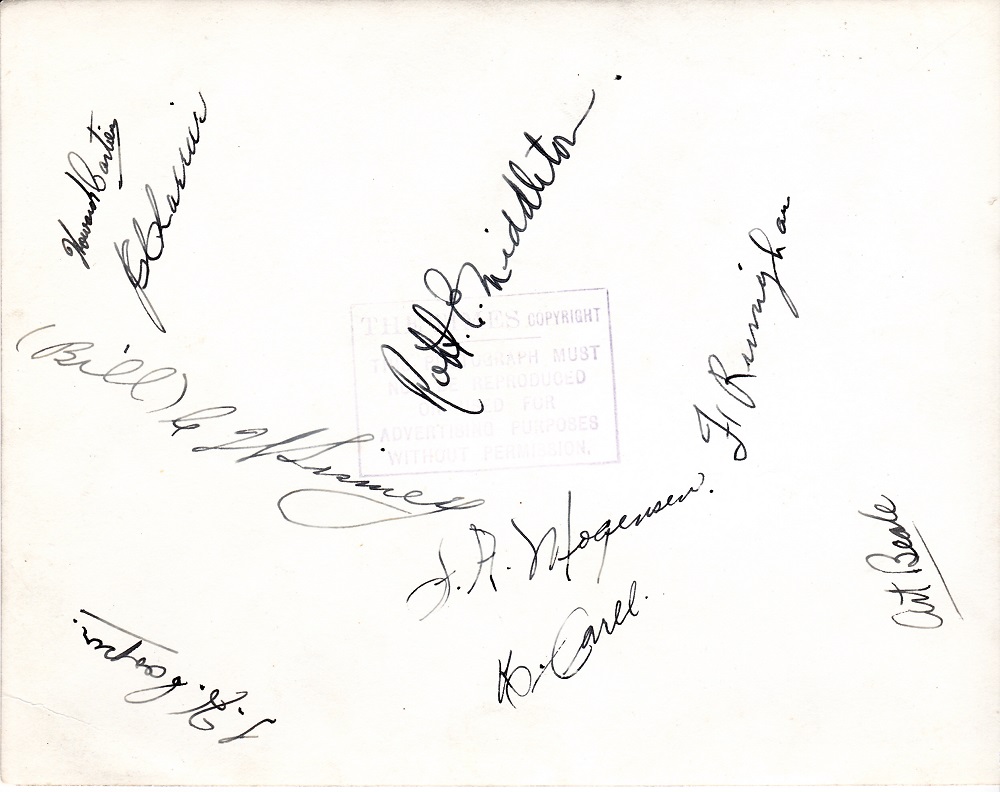 Howard Cartier
Robt. C. Middleton
THE TIMES COPYRIGHT
THIS PHOTOGRAPH MUST
NOT BE REPRODUCED
OR USED FOR
ADVERTISING PURPOSES
WITHOUT PERMISSION.
(Bill)
F. Ringhan
F. A. Mogensen.
K. Carll.
Art Beale
J. H. Casper.